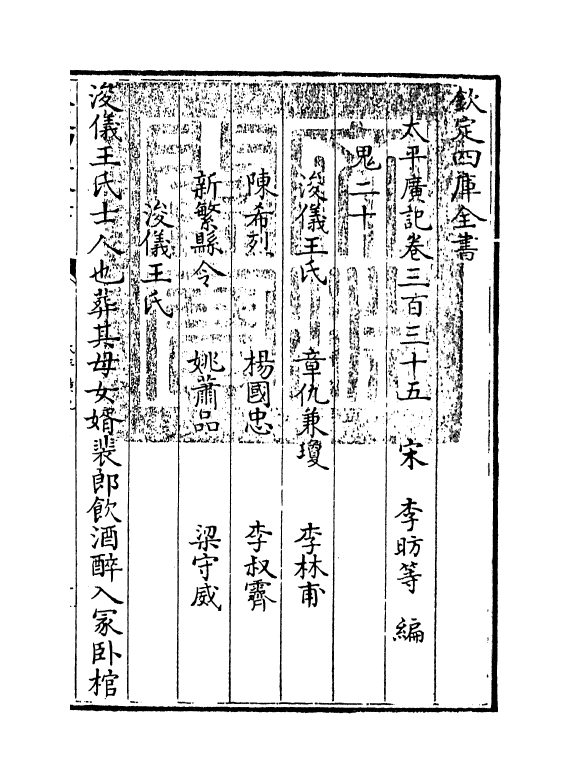 欽定四庫全書
太平廣記卷三百三十五　宋　李昉等　編
鬼二十
浚儀王氏　章仇兼瓊　李林甫
陳希烈　楊國忠　李叔霽
新繁縣令　姚蕭品　梁守威
浚儀王氏
浚儀王氏士人也葬其母女婿裴郎飲酒醉入冢卧棺